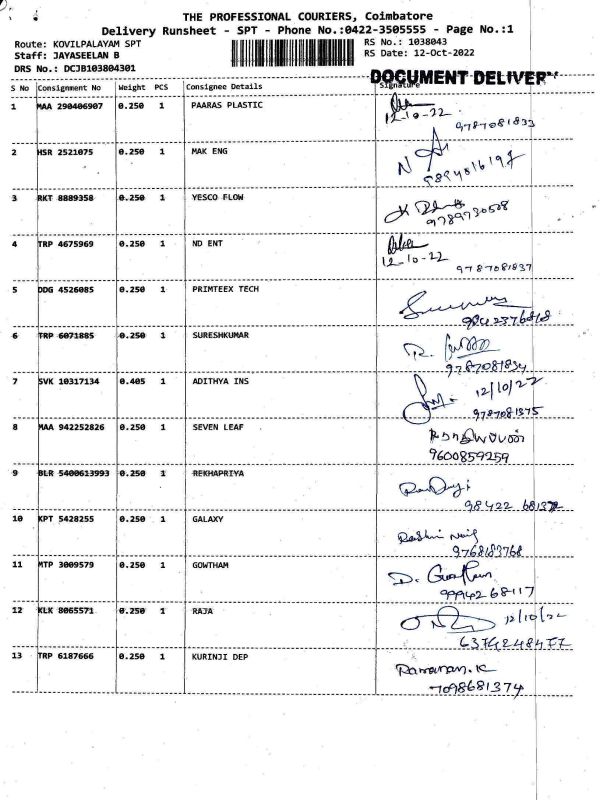 THE PROFESSIONAL COURIERS, Coimbatore
Delivery Runsheet - SPT - Phone No.:0422-3505555 - Page No.:1
Route: KOVILPALAYAM SPT RS No.: 1038043
Staff: JAYASEELAN B RS Date: 12-Oct-2022
DRS No.: DCJB103804301 DOCUMENT DELIVERY
S No Consignment No Weight PCS Consignee Details Signature
1 MAA 290406907 0.250 1 PAARAS PLASTIC
12-10-22
9787081833
2 HSR 2521075 0.250 1 MAK ENG
9894016197
3 RKT 8889358 0.250 1 YESCO FLOW
9789730508
4 TRP 4675969 0.250 1 ND ENT
12-10-22
9787081837
5 DDG 4526085 0.250 1 PRIMTEEX TECH
9842376818
6 TRP 6071885 0.250 1 SURESHKUMAR
9787081834
7 SVK 10317134 0.405 1 ADITHYA INS
12/10/22
9787081375
8 MAA 942252826 0.250 1 SEVEN LEAF
9600859259
9 BLR 5400613993 0.250 1 REKHAPRIYA
98422
10 KPT 5428255 0.250 1 GALAXY
9768183768
11 MTP 3009579 0.250 1 GOWTHAM
D. Gowtham
9994268117
12 KLK 8065571 0.250 1 RAJA
12/10/22
6374248477
13 TRP 6187666 0.250 1 KURINJI DEP
Ramanan.K
7098681374